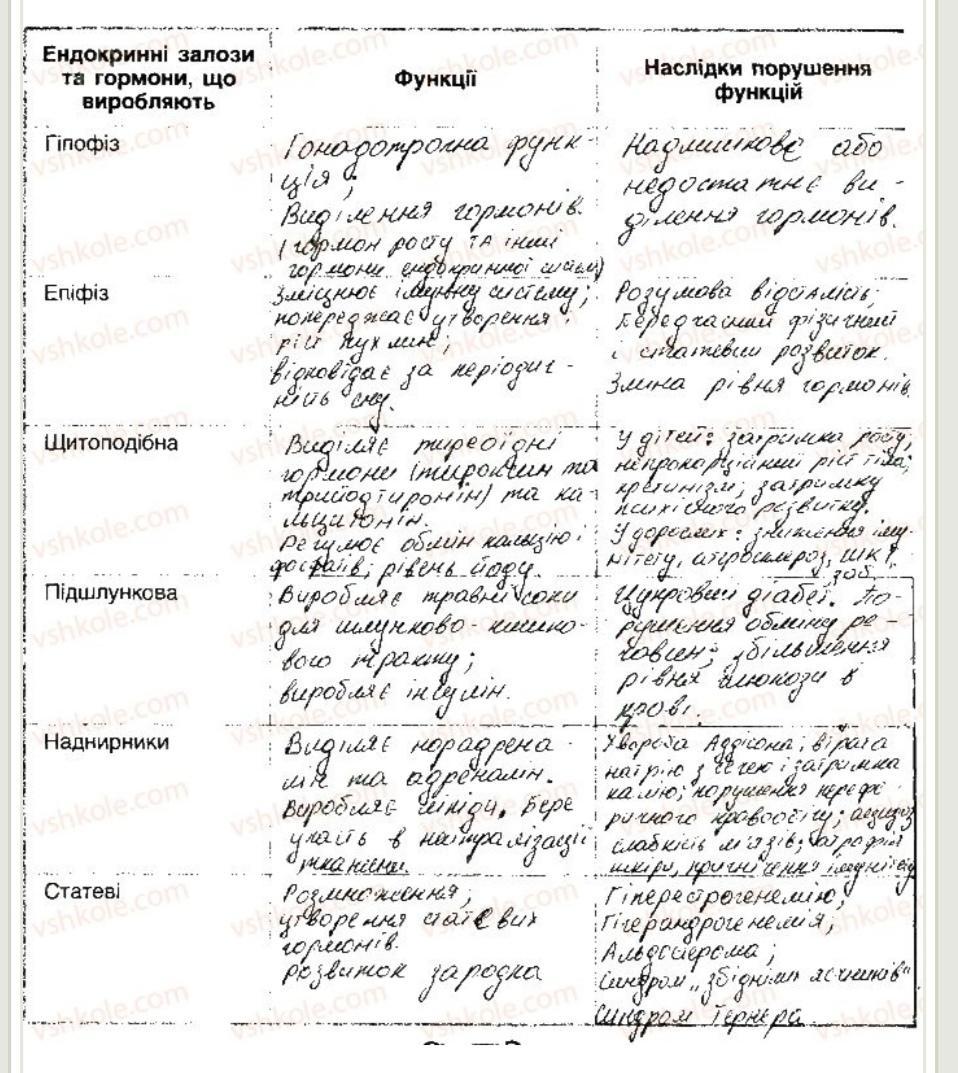 Ендокринні залози
та гормони, що
виробляють
Функції
Наслідки порушення
функцій
Гіпофіз
Гонадотропна функ-
ція;
Виділення гормонів.
(гормон росту та інші
гормони ендокринної
Надлишкове або
недостатнє ви-
ділення гормонів.
Епіфіз
Зміцнює імунну систему;
попереджає утворення
пухлин;
відповідає за періодич-
ність сну.
Розумова відсталість;
Передчасний фізичний
і статевий розвиток.
Зміна рівня гормонів.
Щитоподібна
Виділяє тиреоїдні
гормони (тироксин та
трийодтиронін) та ка-
льцитонін.
Регулює обмін кальцію і
фосфатів; рівень йоду.
У дітей: затримка росту,
непропорційний ріст тіла;
кретинізм; затримку
психічного розвитку.
У дорослих: зниження іму-
нітету, атеросклероз,
зоб.
Підшлункова
Виробляє травні соки
для шлунково-кишко-
вого тракту;
виробляє інсулін.
Цукровий діабет. По-
рушення обміну ре-
човин; збільшення
рівня глюкози в
крові.
Наднирники
Виділяє норадрена-
лін та адреналін.
Виробляє ліпіди. Бере
участь в
тканини.
Хвороба Аддісона; втрата
натрію з сечею і затримка
калію; порушення перефе-
ричного кровообігу;
слабкість м'язів; атрофія
шкіри, пригнічення імунітету
Статеві
Розмноження;
утворення статевих
гормонів.
розвиток зародка
Гіперестрогенемію;
Гіперандрогенемія;
Альдостерома;
Синдром „збіднілих яєчників"
Синдром Тернера.
vshkole.com